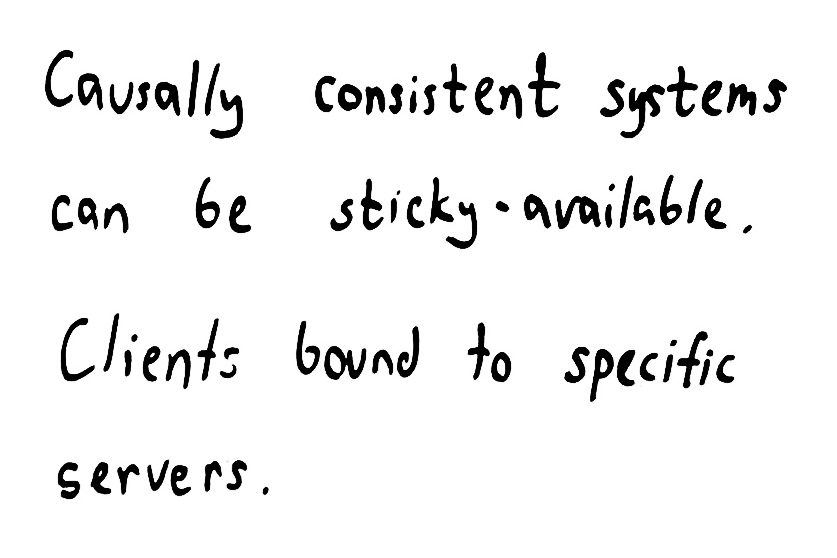 Causally consistent systems
can be sticky-available.
Clients bound to specific
servers.